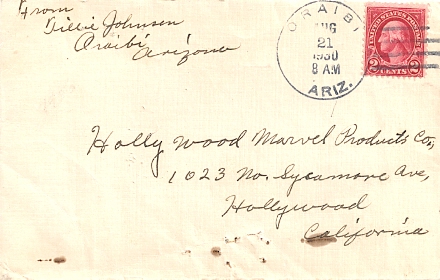 From
Tillie Johnson
Oraibi
Arizona
ORAIBI
AUG
21
1930
8 AM
ARIZ.
UNITED STATES POSTAGE
2 CENTS 2
Holly wood Marvel Products Co.,
1023 No. Sycamore Ave,
Hollywood
California